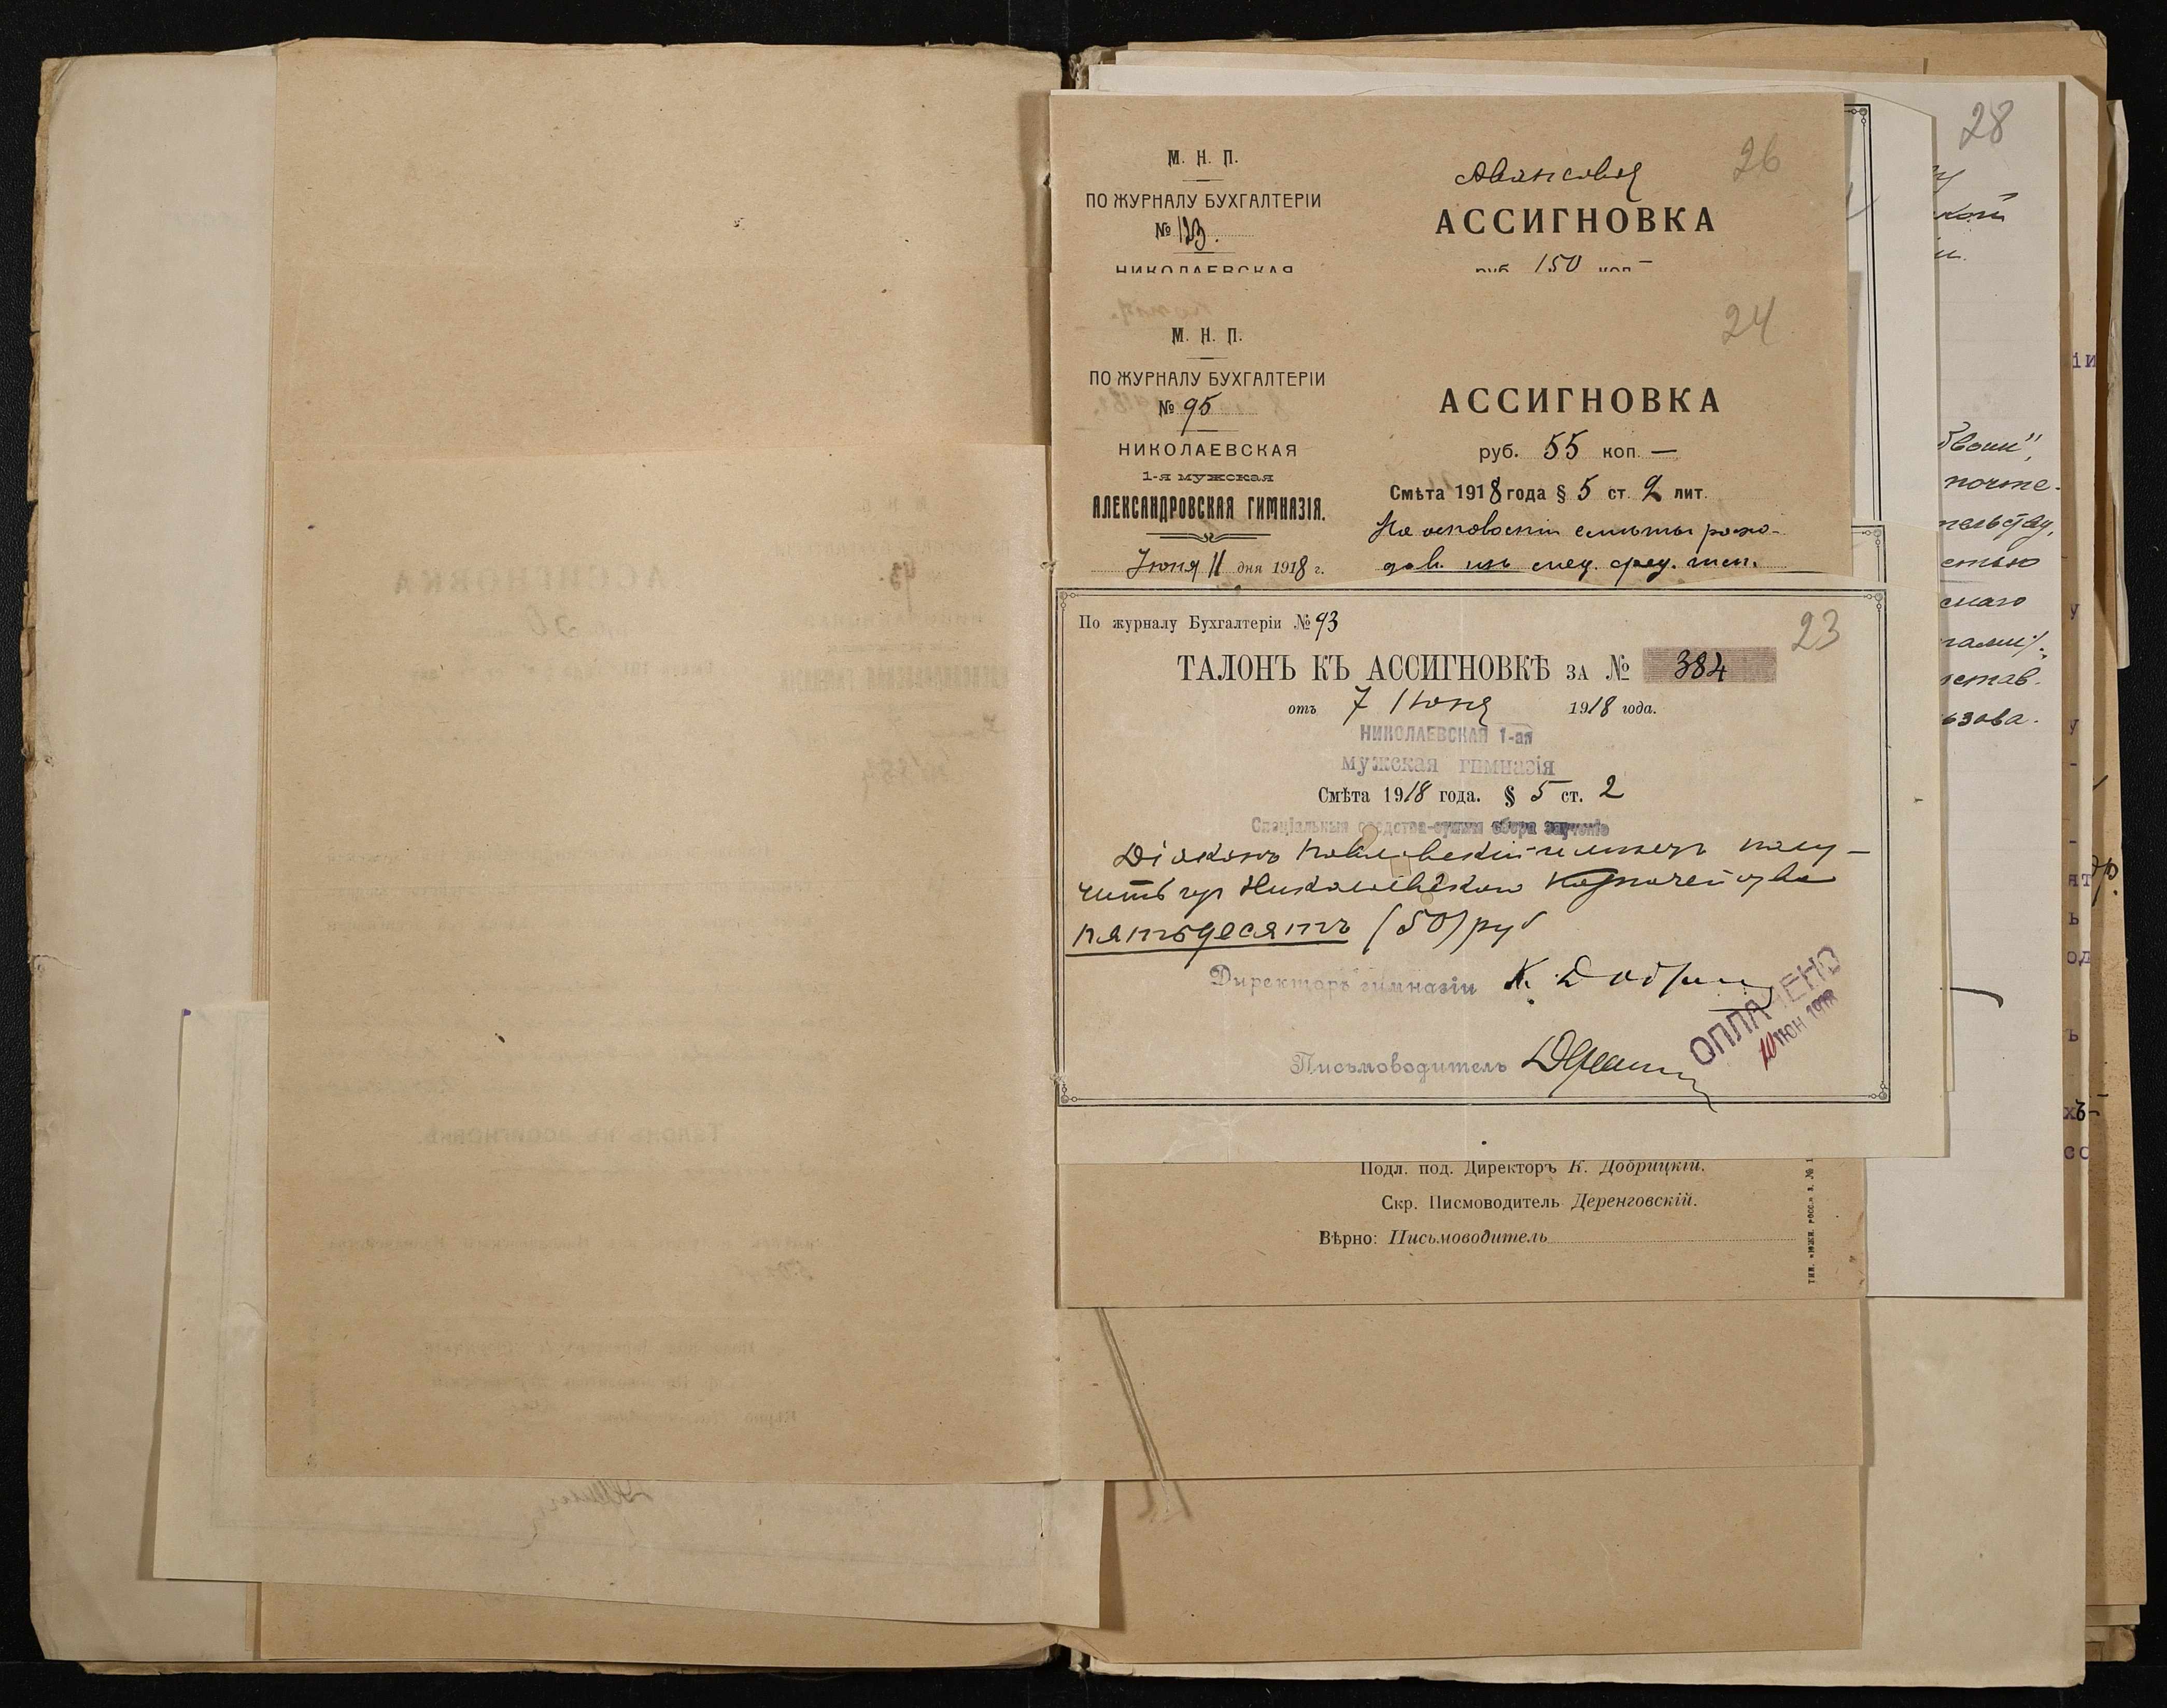 28
М. Н. П.
ПО ЖУРНАЛУ БУХГАЛТЕРІИ
№ 123.
НИКОЛАЕВСКАЯ
26
Авансовая
АССИГНОВКА
руб. 150 коп. —
М. Н. П.
ПО ЖУРНАЛУ БУХГАЛТЕРІИ
№ 95
НИКОЛАЕВСКАЯ
1-я мужская
АЛЕКСАНДРОВСКАЯ ГИМНАЗІЯ.
Июня 11 дня 1918 г.
24
АССИГНОВКА
руб. 55 коп. —
Смѣта 1918 года § 5 ст. 2 лит.
На основаніи смѣты расхо-
дов. изъ спец. сред. гимн.
По журналу Бухгалтеріи № 93
23
ТАЛОНЪ КЪ АССИГНОВКѢ ЗА № 384
отъ 7 Июня 1918 года.
НИКОЛАЕВСКАЯ 1-ая
мужская гимназія
Смѣта 1918 года. § 5 ст. 2
Спеціальныя средства-суммы сбора за ученіе
Діаконъ имѣетъ полу-
чить изъ Николаевскаго Казначейства
пятьдесятъ (50) руб
Директоръ гимназіи К. Добрицкій
Письмоводитель
ОПЛАЧЕНО
10 ИЮН 1918
Подл. под. Директоръ К. Добрицкій.
Скр. Писмоводитель Деренговскій.
Вѣрно: Письмоводитель
тип. «южн. росс.» з. № 1
кой
ии.
почте-
стью
наго
ьзова.
іи
у
у
-
ят
ъ
од
ъ
хъ-
сс